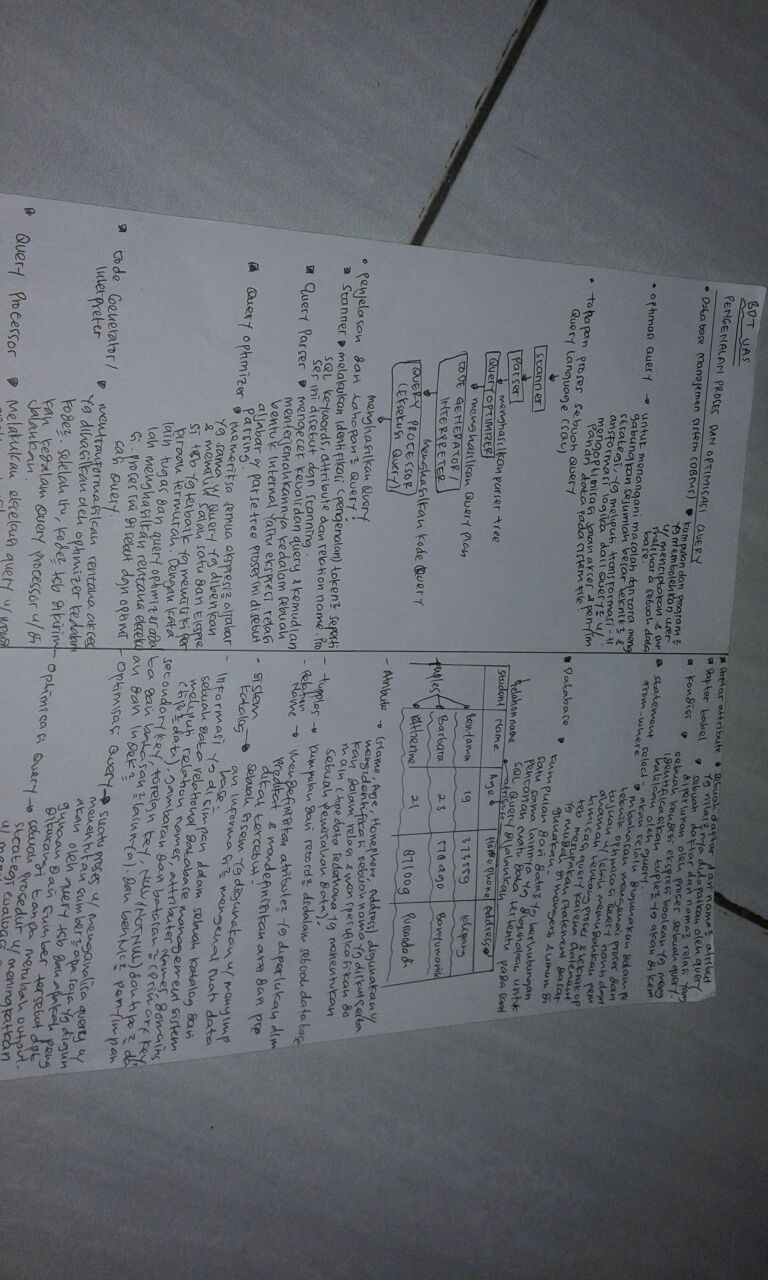 BDT UAS
PENGENALAN PROSES DAN OPTIMISASI QUERY
• Database Manajemen Sistem (DBMS) • kumpulan dari program2
yg membolehkan user
u/ menciptakan & me
melihara sebuah data
base.
• optimasi Query → untuk menangani masalah dgn cara meng
gabungkan sejumlah besar teknik2 &
strategi, yg meliputi transformasi-tr
ansformasi logika dari Query2 u/
mengoptimisasi jalan akses & penyim
panan data pada sistem file!
• tahapan proses sebuah Query
Query Language (SQL)
Scanner
Parser
menghasilkan parser tree
QUERY OPTIMIZER
menghasilkan Query plan
CODE GENERATOR /
INTERPRETER
Menghasilkan kode Query
QUERY PROCESSOR
(Eksekusi Query)
menghasilkan Query
• penjelasan dari tahapan2 Query!
Scanner • melakukan identifikasi (pengenalan) token2 seperti
SQL keywords, attribute dan relation name. Pro
ses ini disebut dgn scanning.
Query Parser • mengecek kevalidan query & kemudian
menterjemahkannya kedalam sebuah
bentuk internal yaitu ekspresi relasi
aljabar / parse tree proses ini disebut
Parsing.
Query optimizer • memeriksa semua ekspresi2 aljabar
yg sama u/ query yg diberikan
& memilih salah satu dari Ekspre
si tsb yg terbaik yg memiliki per
kiraan termurah. Dengan kata
lain tugas dari query optimizer ada
lah menghasilkan rencana ekseku
si. proses ini disebut dgn optimi
sasi Query.
Code Generator/
Interpreter • mentranformasikan rencana akses
yg dihasilkan oleh optimizer kedalam
kode2. setelah itu, kode2 tsb dikirim
kan kedalam Query processor u/ di
jalankan.
Query Processor • Melakukan eksekusi query u/
Daftar attribute • sebuah daftar dari nama2 atribut
yg nilai2nya didapatkan oleh query.
Daftar tabel • sebuah daftar dari nama2 relasi yang
diperlukan oleh proses sebuah query.
Kondisi • sebuah kondisi ekspresi boolean yg meng
identifikasikan tuple2 yg akan di kem
balikan oleh query.
statement select-
from-where • akan selalu digunakan dalam pe
mbahasan mengenai proses dan
teknik optimisasi query nanti dgn
tujuan u/ lebih memudahkan pem
ahaman tentang proses & teknik op
timisasi query karena statement
tsb merupakan statement dasar
yg mudah di mengerti & umum di
gunakan.
Database • kumpulan dari data2 yg berhubungan
satu sama lainnya yg digunakan untuk
pencarian suatu data tertentu pada saat
SQL Query dijalankan
relation name
atribute
student Name Age Home phone Address
Benjamin 19 373559
tuples Barbara 23 Banyumanik
Katherine 21 871009
- Atribute → (Name, Age, Homephone, Address) digunakan u/
mengidentifikasi sebuah nama yg diikutserta
kan dalam relasi & menspesifikasikan do
main (tipe data sederhana yg menentukan
sebuah pemisahan data).
- tupples → kumpulan dari record2 didalam sebuah database
- Relation
Name → mendefinisikan atribute2 yg diperlukan dlm
predikat & mendefinisikan arti dari pre
dikat tersebut.
- sistem
katalog → sebuah sisem yg digunakan u/ menyimp
an informasi2 mengenai suatu data
base.
- Informasi yg disimpan dalam sebuah katalog dari
sebuah data relational database management sistem
meliputi relation names, attributes names, domains
(tipe2 data), gambaran dari batasan2 (primary key,
secondary key, foreign key, NULL/NOT NULL) dan tipe2 da
ta dari batasan2 lainnya). dan bentuk2 penyimpan
an dan indek2
- Optimisasi Query → suatu proses u/ menganalisa query u/
menentukan sumber2 apa saja yg digun
akan oleh query tsb dan apakah peng
gunaan dari sumber tersebut dpt
dikurangi tanpa merubah output.
- Optimisasi Query → sebuah prosedur u/ meningkatkan
strategi evaluasi